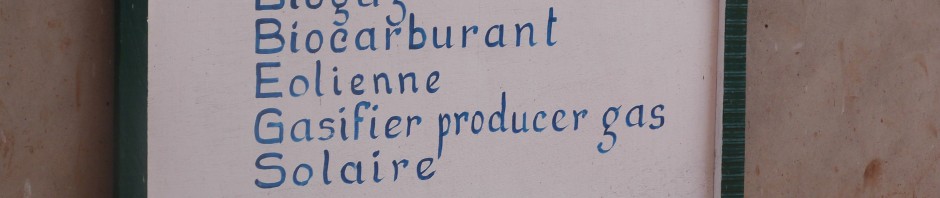 Biogaz
Biocarburant
Eolienne
Gasifier producer gas
Solaire